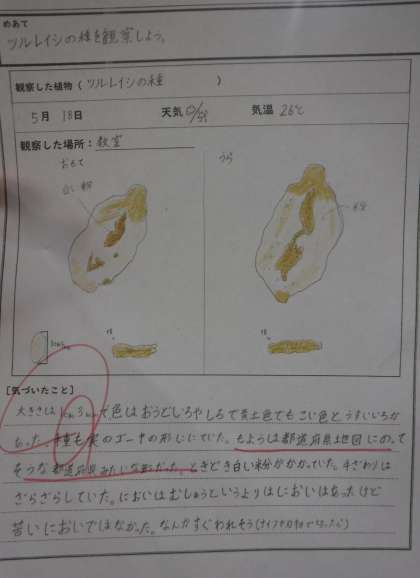 めあて
ツルレイシの種を観察しよう。
観察した植物(ツルレイシの種)
5月 18日 天気 気温 26℃
観察した場所:教室
おもて うら
白い粉
横 横
[気づいたこと]
大きさは1cm3mmで色はおうどいろやしろで黄土色でもこい色とうすいいろが
あった 種も実のゴーヤの形ににていた。もようは都道府県地図にのって
そうな都道府県みたいな形だった。ときどき白い粉がかかっていた。手ざわりは
ざらざらしていた。においはむしゅうというよりはにおいはあったけど
苦いにおいではなかった。なんかすぐわれそう